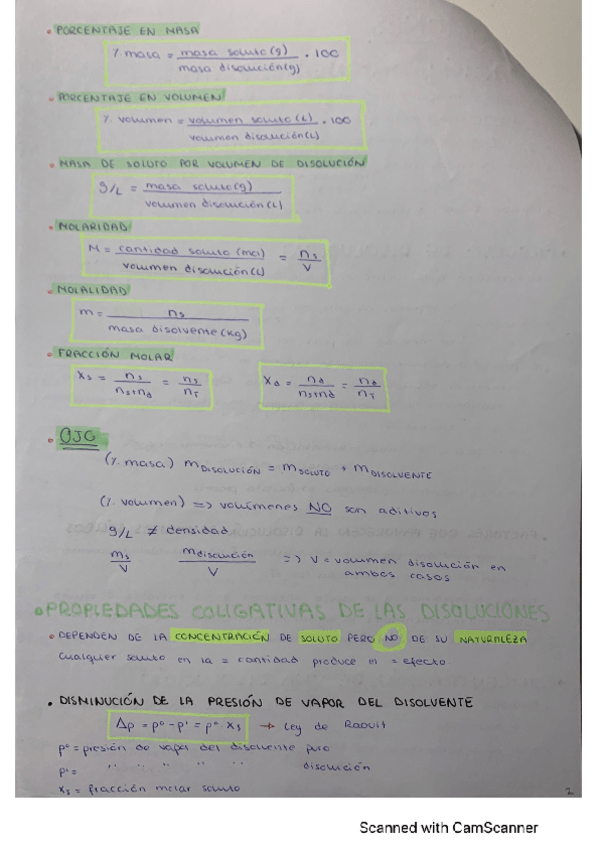 • PORCENTAJE EN MASA
% masa = masa soluto (g) / masa disolución (g) · 100
• PORCENTAJE EN VOLUMEN
% volumen = volumen soluto (L) / volumen disolución (L) · 100
• MASA DE SOLUTO POR VOLUMEN DE DISOLUCIÓN
g/L = masa soluto (g) / volumen disolución (L)
• MOLARIDAD
M = cantidad soluto (mol) / volumen disolución (L) = ns / V
• MOLALIDAD
m = ns / masa disolvente (kg)
• FRACCIÓN MOLAR
Xs = ns / ns+nd = ns / nT    Xd = nd / ns+nd = nd / nT
• OJO
(% masa) m DISOLUCIÓN = m SOLUTO + m DISOLVENTE
(% volumen) => volúmenes NO son aditivos
g/L ≠ densidad
ms / V    m disolución / V => V = volumen disolución en
ambos casos
• PROPIEDADES COLIGATIVAS DE LAS DISOLUCIONES
• DEPENDEN DE LA CONCENTRACIÓN DE SOLUTO PERO NO DE SU NATURALEZA
Cualquier soluto en la = cantidad produce el = efecto
• DISMINUCIÓN DE LA PRESIÓN DE VAPOR DEL DISOLVENTE
Δp = p° - p' = p° · Xs → Ley de Raoult
p° = presión de vapor del disolvente puro
p' = " " " " " disolución
Xs = fracción molar soluto
2
Scanned with CamScanner